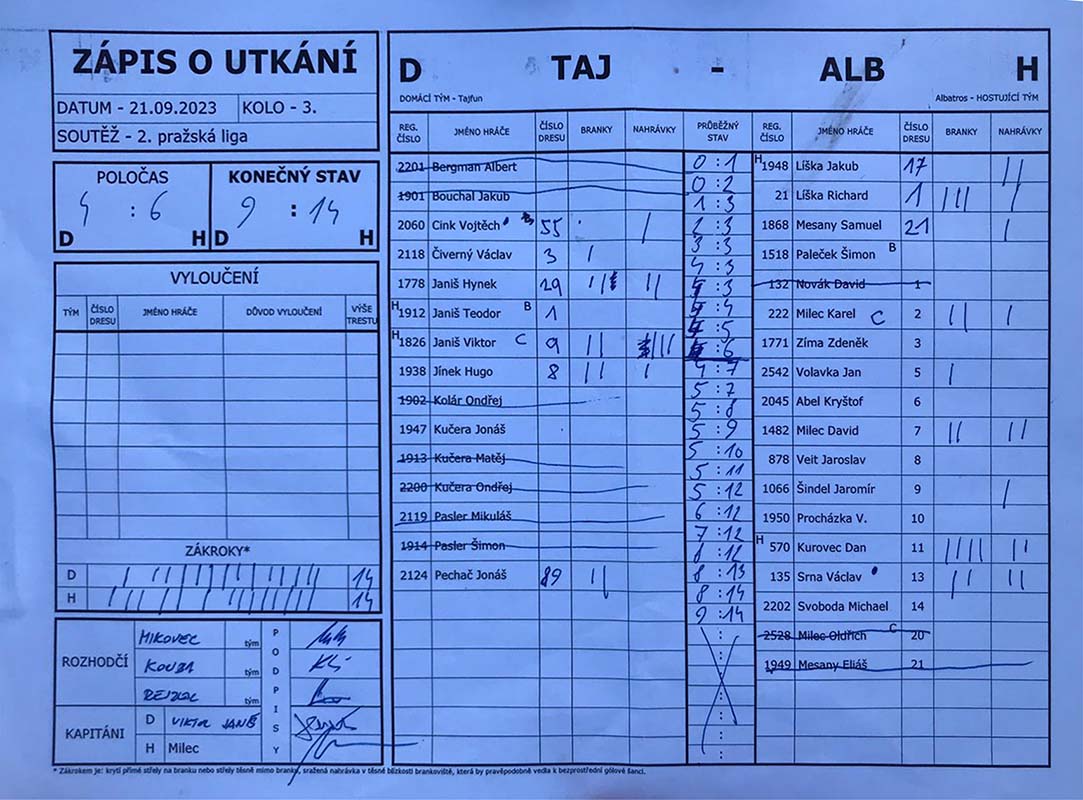 ZÁPIS O UTKÁNÍ
DATUM - 21.09.2023 KOLO - 3.
SOUTĚŽ - 2. pražská liga
POLOČAS KONEČNÝ STAV
: 6 9 : 14
D H D H
VYLOUČENÍ
TÝM ČÍSLO DRESU JMÉNO HRÁČE DŮVOD VYLOUČENÍ VÝŠE TRESTU
ZÁKROKY*
D 14
H 14
ROZHODČÍ
MIKOVEC tým
KOUBA tým
tým
PODPISY
KAPITÁNI
D VIKTOR
H Milec
D TAJ - ALB H
DOMÁCÍ TÝM - Tajfun Albatros - HOSTUJÍCÍ TÝM
REG. ČÍSLO JMÉNO HRÁČE ČÍSLO DRESU BRANKY NAHRÁVKY PRŮBĚŽNÝ STAV REG. ČÍSLO JMÉNO HRÁČE ČÍSLO DRESU BRANKY NAHRÁVKY
2201 Bergman Albert
1901 Bouchal Jakub
2060 Cink Vojtěch 55
2118 Čiverný Václav 3
1778 Janiš Hynek 29
H 1912 Janiš Teodor B 1
H 1826 Janiš Viktor C 9
1938 Jínek Hugo 8
1902 Kolár Ondřej
1947 Kučera Jonáš
1913 Kučera Matěj
2200 Kučera Ondřej
2119 Pasler Mikuláš
1914 Pasler Šimon
2124 Pechač Jonáš 89
0 : 1
0 : 2
1 : 3
2 : 3
3 : 3
4 : 3
4 : 3
4 : 4
4 : 5
: 6
4 : 7
5 : 7
5 : 8
5 : 9
5 : 10
5 : 11
5 : 12
6 : 12
7 : 12
8 : 12
8 : 13
8 : 14
9 : 14
:
:
:
:
:
H 1948 Líška Jakub 17
21 Líška Richard 1
1868 Mesany Samuel 21
1518 Paleček Šimon B
132 Novák David 1
222 Milec Karel C 2
1771 Zíma Zdeněk 3
2542 Volavka Jan 5
2045 Abel Kryštof 6
1482 Milec David 7
878 Veit Jaroslav 8
1066 Šindel Jaromír 9
1950 Procházka V. 10
H 570 Kurovec Dan 11
135 Srna Václav 13
2202 Svoboda Michael 14
2528 Milec Oldřich C 20
1949 Mesany Eliáš 21
* Zákrokem je: krytí přímé střely na branku nebo střely těsně mimo branku, sražená nahrávka v těsné blízkosti brankoviště, která by pravěpodobně vedla k bezprostřední gólové šanci.